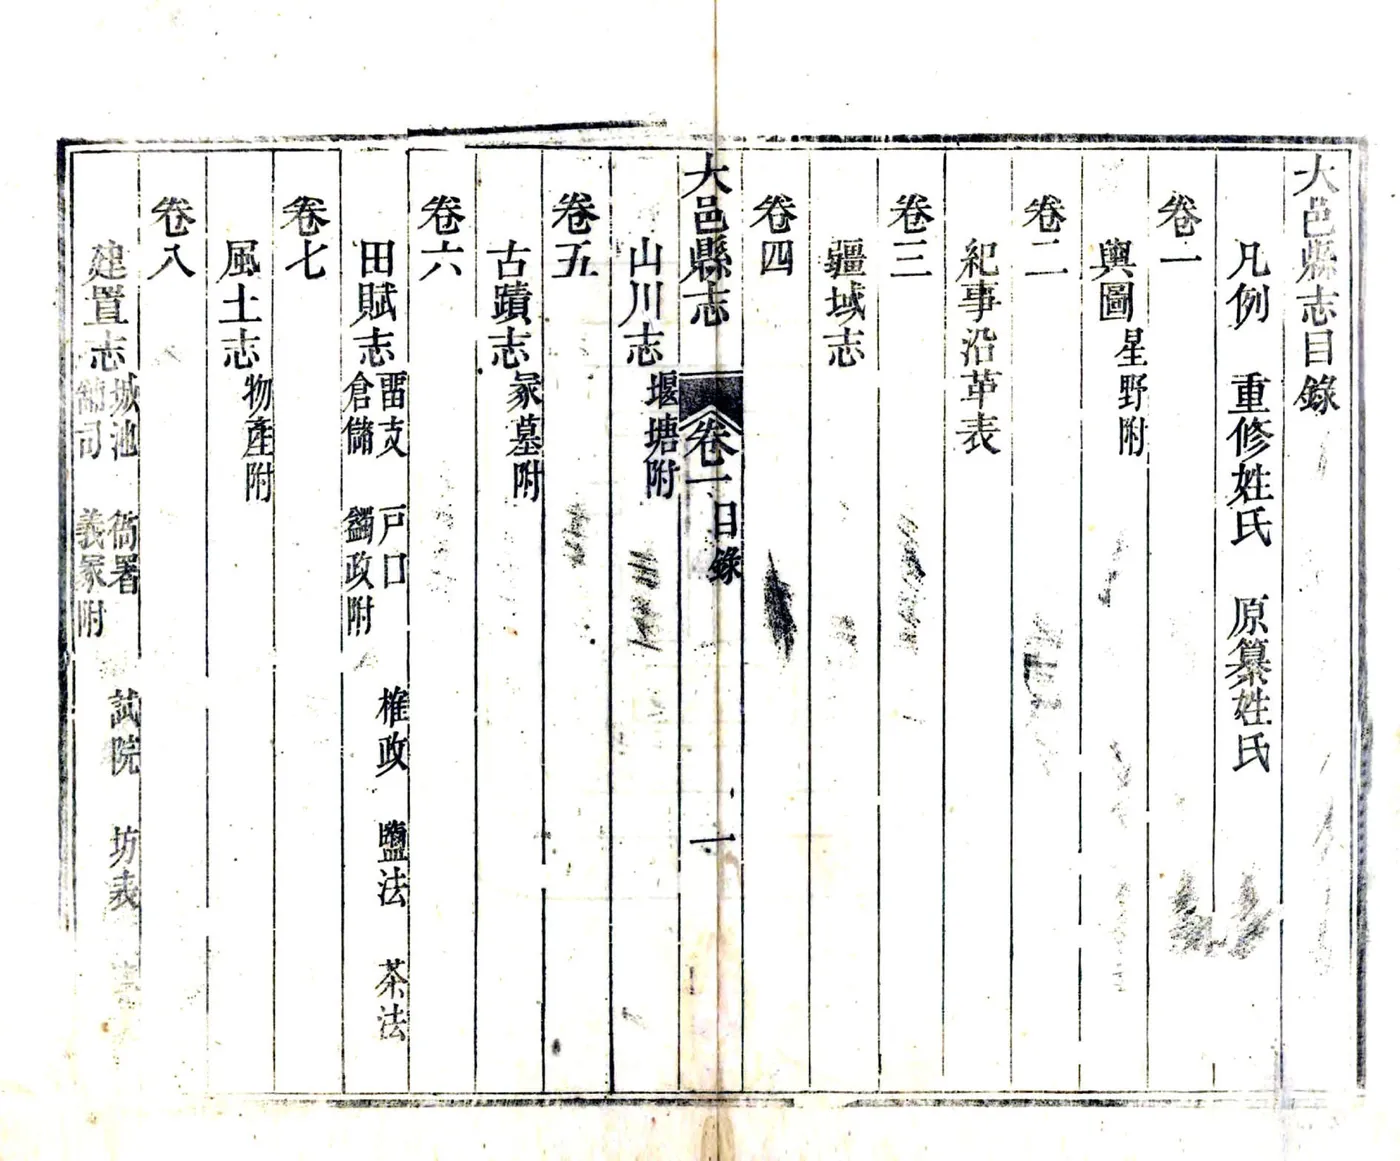 大邑縣志目錄
凡例 重修姓氏 原纂姓氏
卷一
輿圖 星野附
卷二
紀事沿革表
卷三
疆域志
卷四
大邑縣志 卷一 目錄 一
山川志 堰塘附
卷五
古蹟志 冢墓附
卷六
田賦志 畱支 戸口 榷政 鹽法 茶法
倉儲 蠲政附
卷七
風土志 物產附
卷八
建置志 城池 衙署 試院 坊表
義冢附